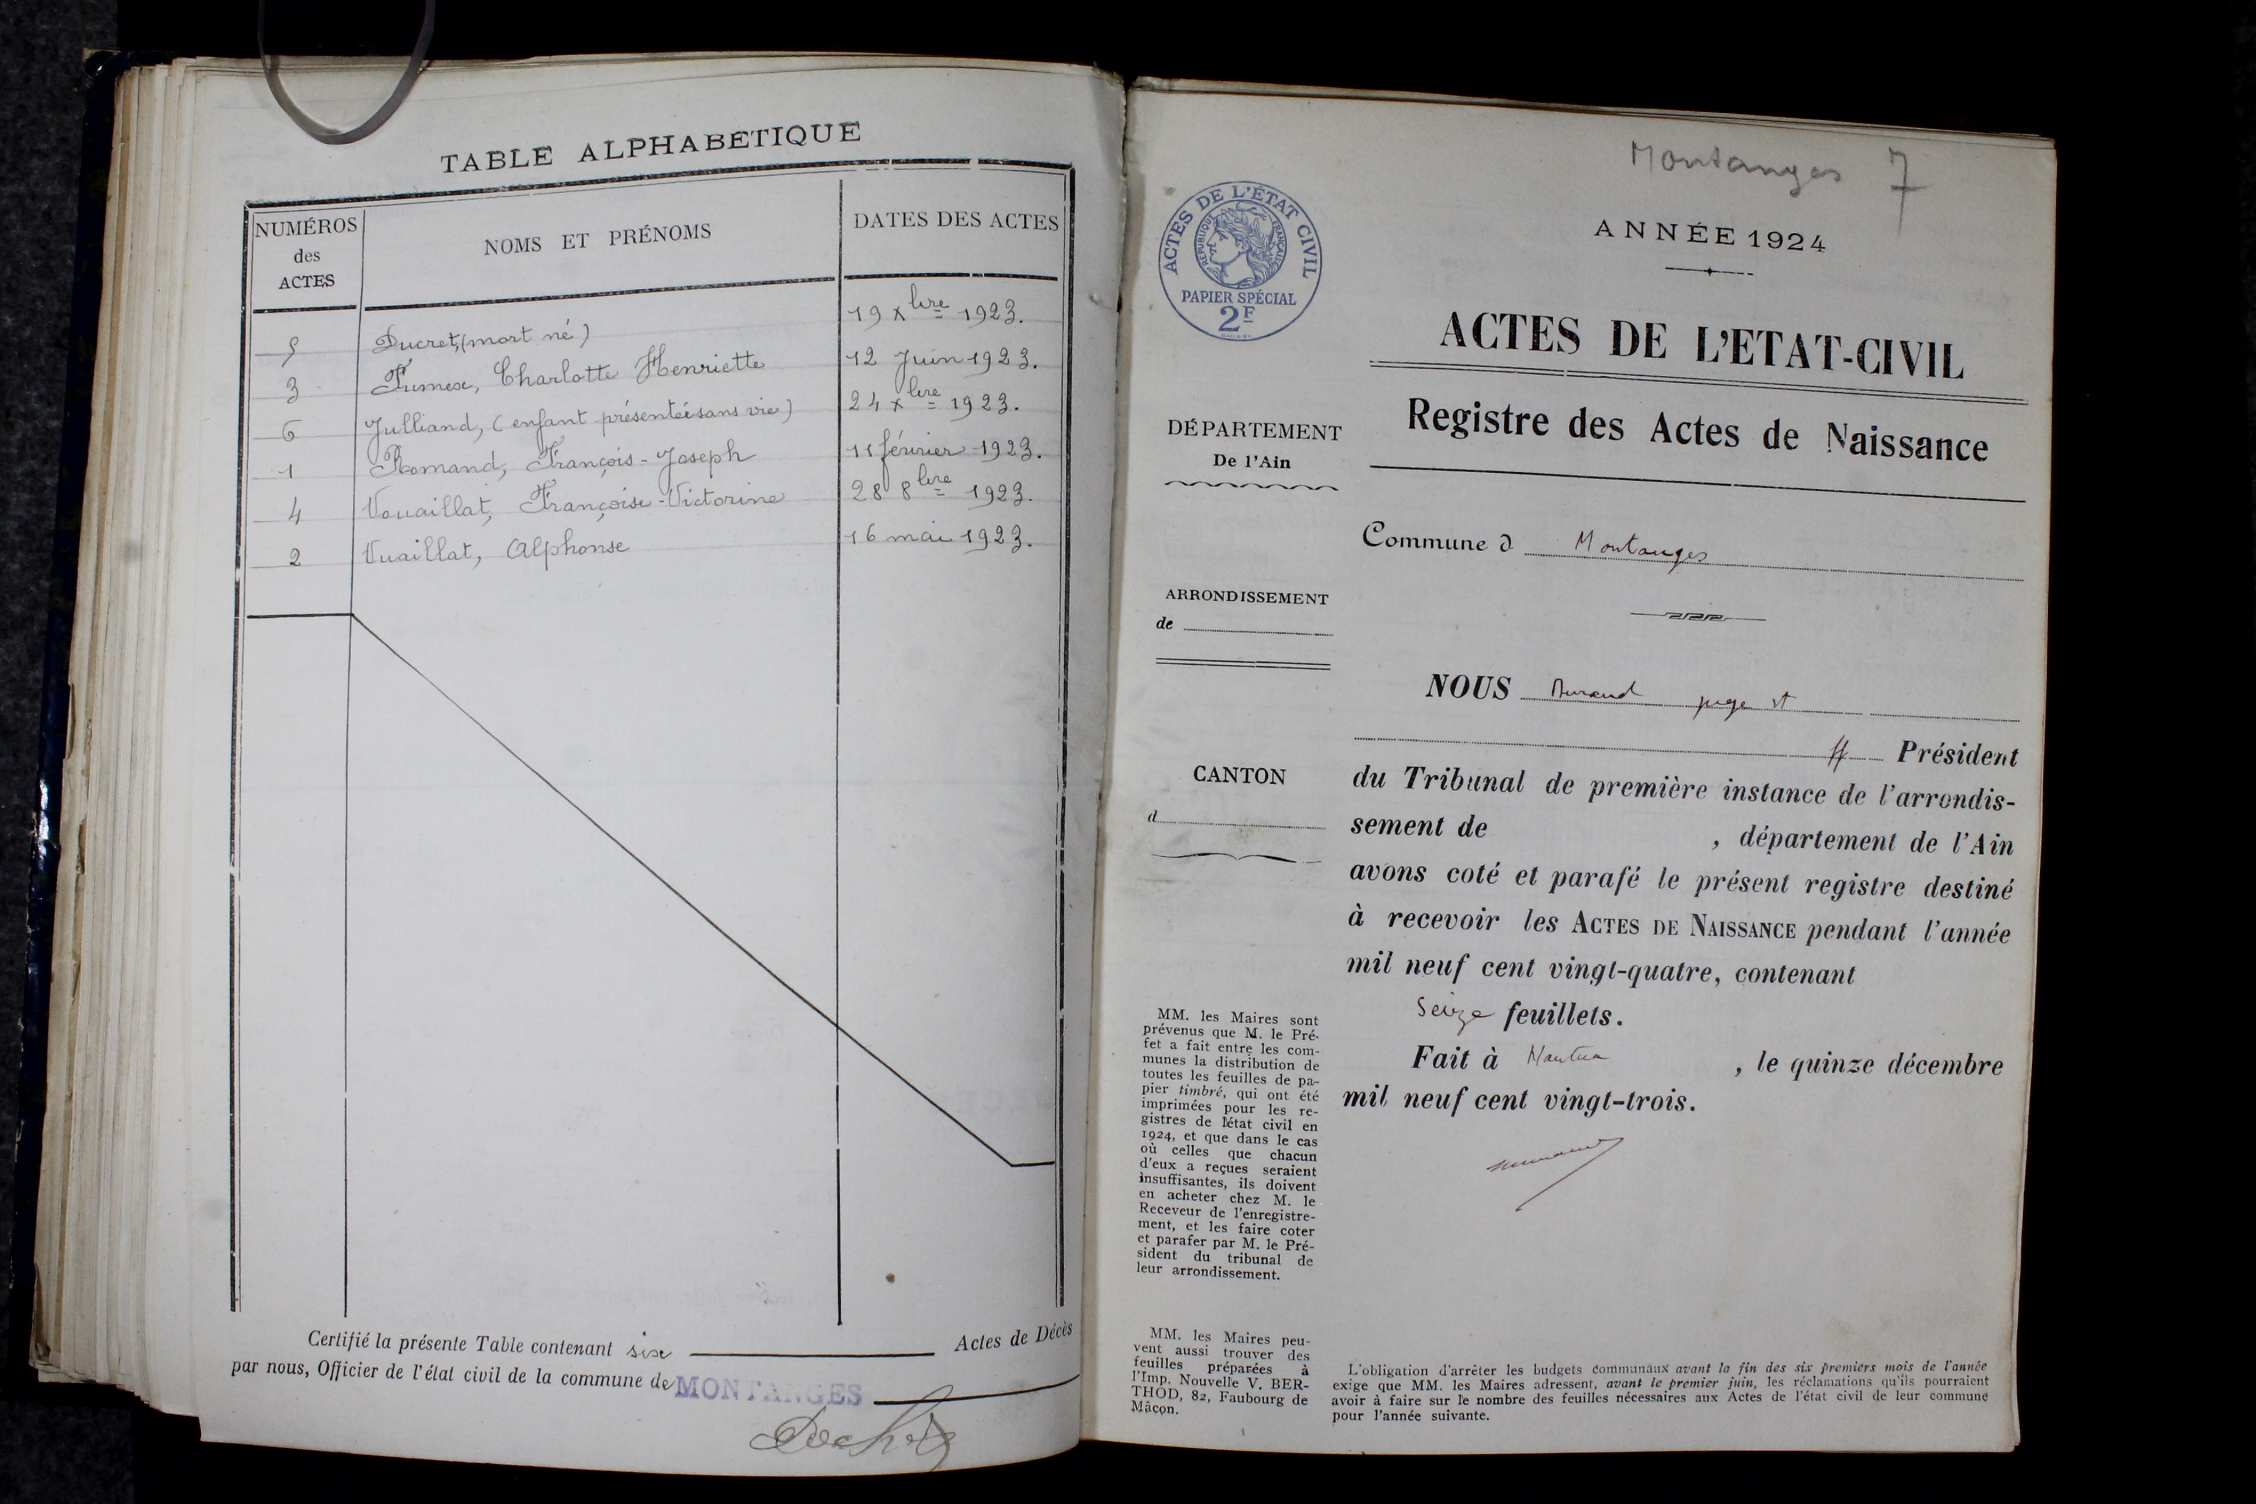 TABLE ALPHABETIQUE
NUMÉROS
des
ACTES
NOMS ET PRÉNOMS
DATES DES ACTES
5 Ducret, (mort né) 19 xbre 1923.
3 Fumex, Charlotte Henriette 12 Juin 1923.
6 Julliand, (enfant présenté sans vie) 24 xbre 1923.
1 Romand, François-Joseph 11 février 1923.
4 Vouaillat, Françoise-Victorine 28 8bre 1923.
2 Vuaillat, Alphonse 16 mai 1923.
Certifié la présente Table contenant six Actes de Décès
par nous, Officier de l'état civil de la commune de MONTANGES
Montanges 7
ACTES DE L'ÉTAT CIVIL
RÉPUBLIQUE FRANÇAISE
PAPIER SPÉCIAL
2F
ANNÉE 1924
ACTES DE L'ETAT-CIVIL
Registre des Actes de Naissance
DÉPARTEMENT
De l'Ain
Commune d Montanges
ARRONDISSEMENT
de
NOUS Durand juge st
ff Président
CANTON
d
du Tribunal de première instance de l'arrondis-
sement de , département de l'Ain
avons coté et parafé le présent registre destiné
à recevoir les ACTES DE NAISSANCE pendant l'année
mil neuf cent vingt-quatre, contenant
Seize feuillets.
Fait à Nantua , le quinze décembre
mil neuf cent vingt-trois.
MM. les Maires sont
prévenus que M. le Pré-
fet a fait entre les com-
munes la distribution de
toutes les feuilles de pa-
pier timbré, qui ont été
imprimées pour les re-
gistres de l'état civil en
1924, et que dans le cas
où celles que chacun
d'eux a reçues seraient
insuffisantes, ils doivent
en acheter chez M. le
Receveur de l'enregistre-
ment, et les faire coter
et parafer par M. le Pré-
sident du tribunal de
leur arrondissement.
MM. les Maires peu-
vent aussi trouver des
feuilles préparées à
l'Imp. Nouvelle V. BER-
THOD, 82, Faubourg de
Mâcon.
L'obligation d'arrêter les budgets communaux avant la fin des six premiers mois de l'année
exige que MM. les Maires adressent, avant le premier juin, les réclamations qu'ils pourraient
avoir à faire sur le nombre des feuilles nécessaires aux Actes de l'état civil de leur commune
pour l'année suivante.